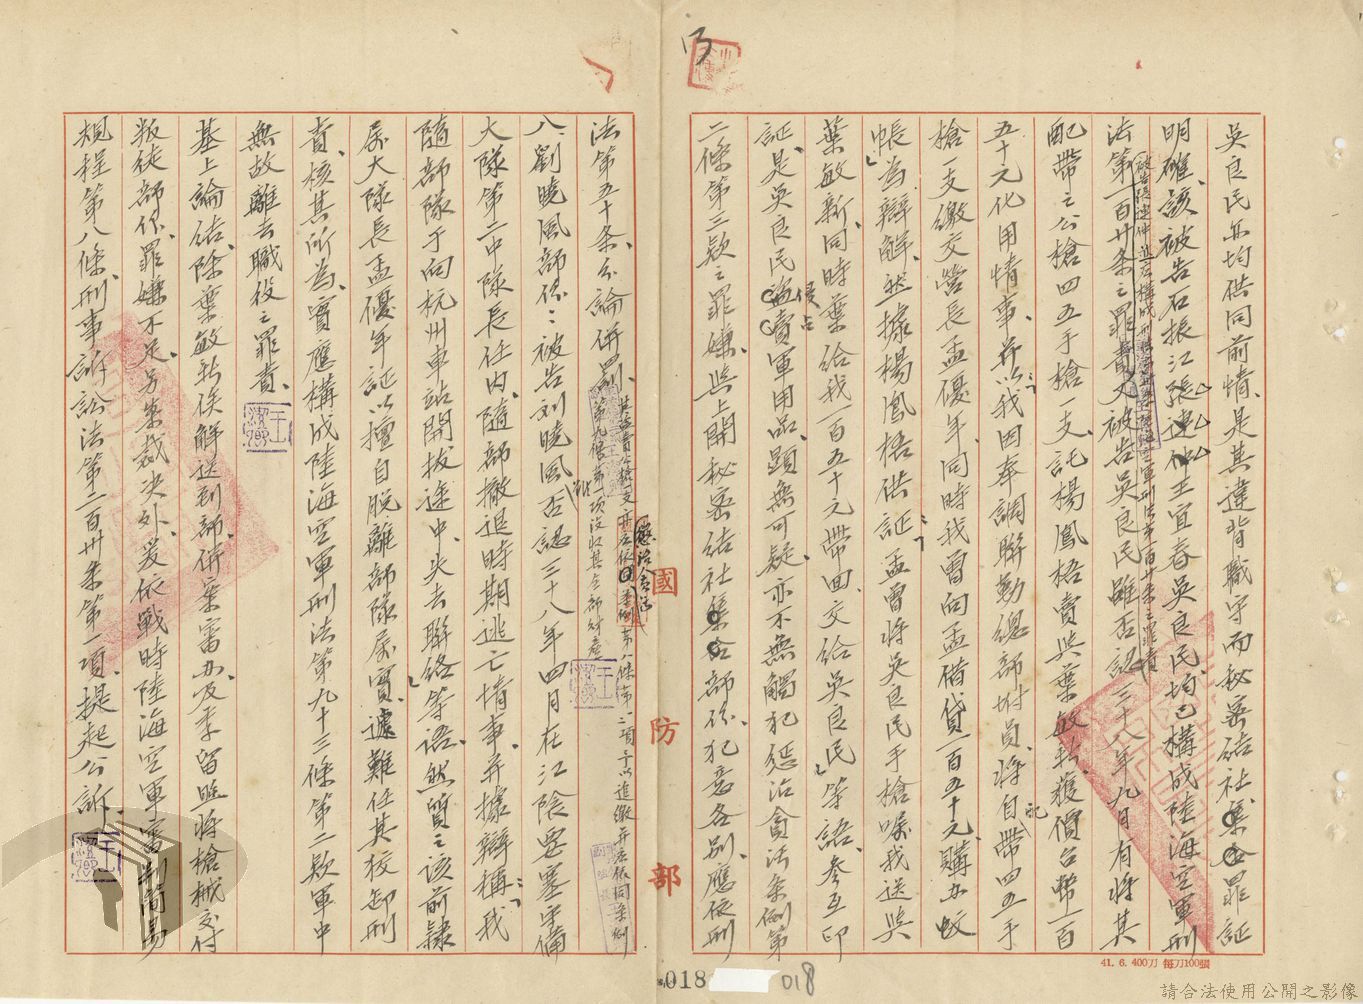 吳良民亦均供同前情、是其違背職守而秘密結社集會罪証
明確、該被告石振江張連仲王宜春吳良民均已構成陸海空軍刑
法第一百廿条之罪責、又被告吳良民雖否認三十八年九月有將其
配帶之公槍四五手槍一支、託楊鳳梧賣與葉敏新、獲價台幣一百
五十元化用情事、并以「我因奉調聯勤總部附員、將自帶四五手
槍一支繳交營長孟優年、同時我曾向孟借貸一百五十元購办蚊
帳」為辯解、然據楊鳳梧供証「孟曾將吳良民手槍囑我送與
葉敏新、同時葉給我一百五十元帶回、交給吳良民」等語、參互印
証、是吳良民侵占盜賣軍用品、顯無可疑、亦不無觸犯懲治貪污条例第
二條第三款之罪嫌、與上開秘密結社集合部份、犯意各別、應依刑
法第五十条、分論併罰、
懲治貪污
第九條第一項沒收其全部財產
八、劉曉風部份：被告刘曉風否認三十八年四月在江陰要塞守備
大隊第二中隊長任內、隨部撤退時期逃亡情事、并據辯稱：「我
隨部隊于向杭州車站開拔途中、失去聯絡等語」、然質之該前隸
屬大隊長孟優年証以擅自脫離部隊屬實、遽難任其狡卸刑
責、核其所為、實應構成陸海空軍刑法第九十三條第二款軍中
無故離去職役之罪責、
基上論結、除葉敏新俟解送到師、併案審办、及李留與將槍械交付
叛徒部份、罪嫌不足、另案裁决外、爰依戰時陸海空軍審判簡易
規程第八條、刑事訴訟法第二百卅条第一項、提起公訴、
國防部
41. 6. 400刀 每刀100張
018
018
請合法使用公開之影像